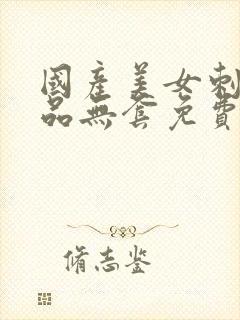 國產美女刺
品無套免費
脩志鉴